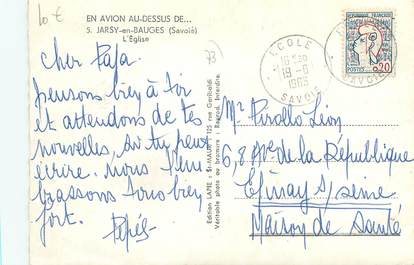 10 €
EN AVION AU-DESSUS DE...
5. JARSY-en-BAUGES (Savoie)
L'Église
73
ECOLE
1965
SAVOIE
REPUBLIQUE FRANÇAISE
POSTES 0,20
SAVOIE
Cher Papa
pensons bien à toi
et attendons de tes
nouvelles, si tu peux
écrire. nous t'em
brassons tous bien
fort.
Edition LAPIE : St-MAUR 125 rue Garibaldi
Véritable photo au bromure : Reprod. Interdite.
Mr Pirollo Léon
6,8 Ave de la République
Epinay s/ seine
Maison de Santé